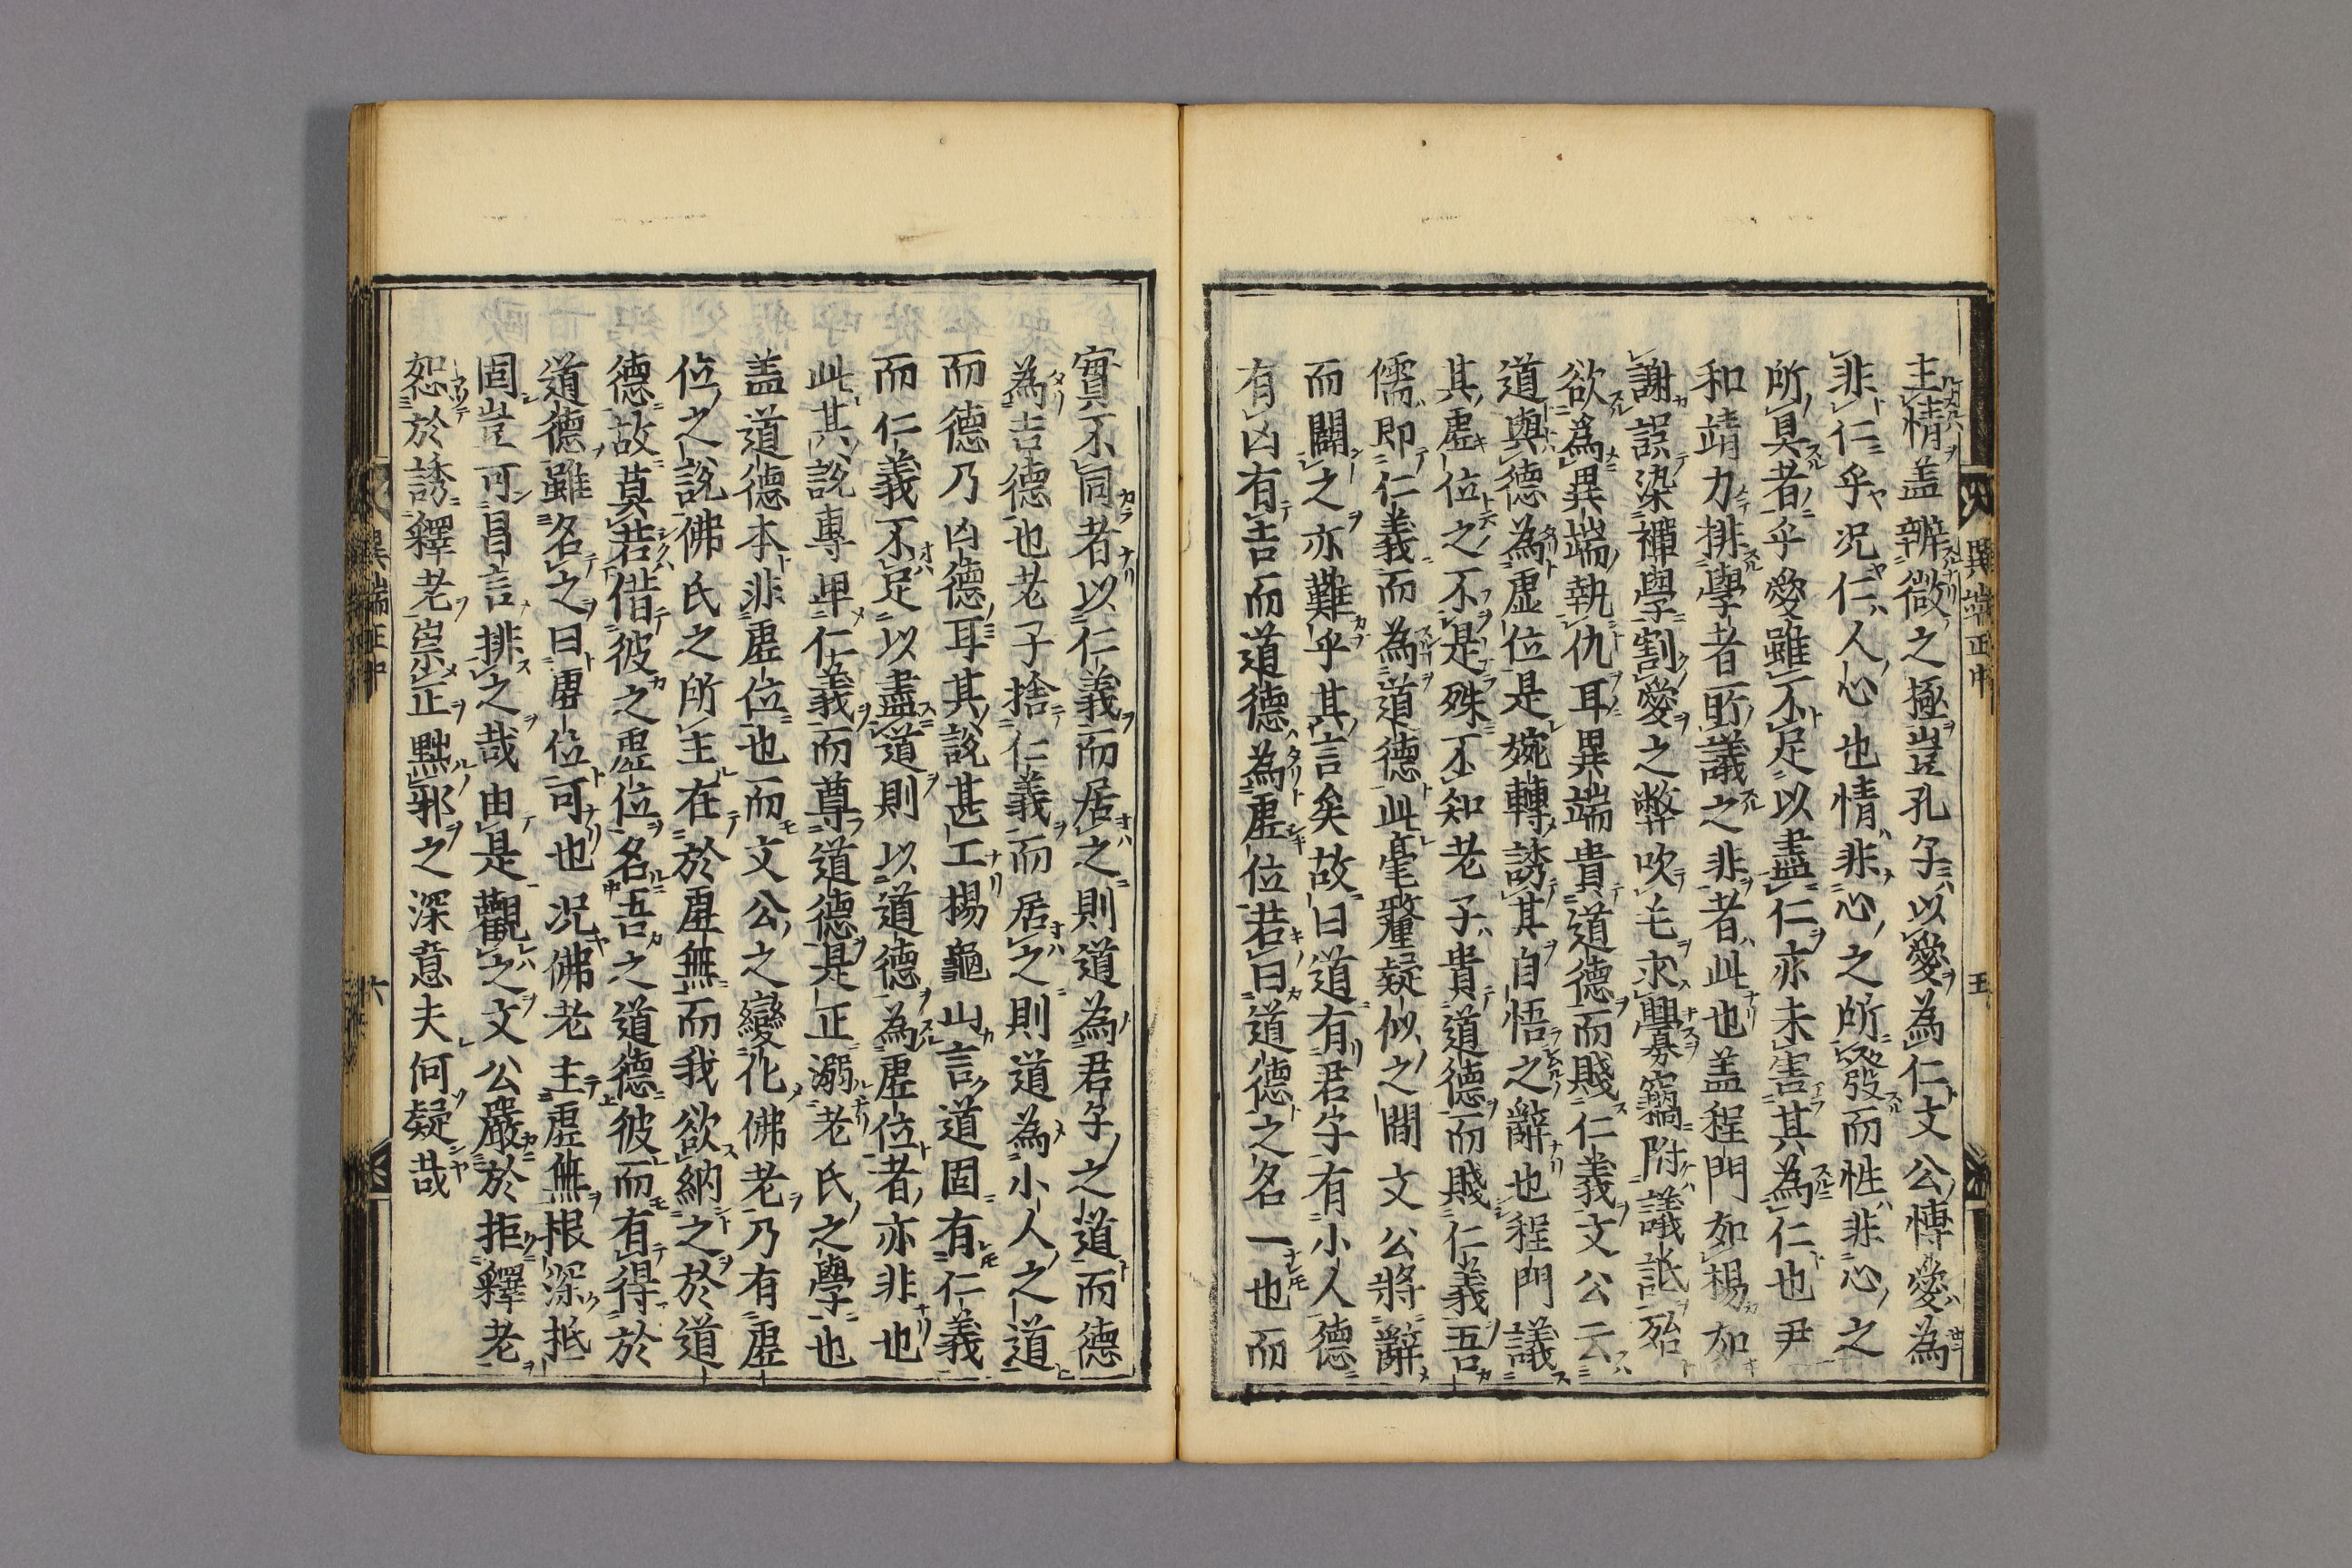 主情盖辨微之極豈孔子以愛為仁文公博愛為
非仁乎況仁人心也情非心之所發而性非心之
所具者乎愛雖不足以盡仁亦未害其為仁也尹
和靖力排學者所議之非者此也盖程門如楊如
謝誤染禪學割愛之弊吹毛求釁剽竊附議詆殆
欲為異端執仇耳異端貴道德而賤仁義文公云
道與德為虛位是婉轉誘其自悟之辭也程門議
其虛位之不是殊不知老子貴道德而賤仁義吾
儒即仁義而為道德此毫釐疑似之間文公將辭
而闢之亦難乎其言矣故曰道有君子有小人德
有凶有吉而道德為虛位若曰道德之名一也而
異端正中
五
實不同者以仁義而居之則道為君子之道而德
為吉德也老子捨仁義而居之則道為小人之道
而德乃凶德耳其說甚工楊龜山言道固有仁義
而仁義不足以盡道則以道德為虛位者亦非也
此其說專卑仁義而尊道德是正溺老氏之學也
盖道德本非虛位也而文公之變化佛老乃有虛
位之說佛氏之所主在於虛無而我欲納之於道
德故莫若借彼之虛位名吾之道德彼而有得於
道德雖名之曰虛位可也況佛老主虛無根深抵
固豈可昌言排之哉由是觀之文公嚴於拒釋老
恕於誘釋老崇正黜邪之深意夫何疑哉
異端正中
六